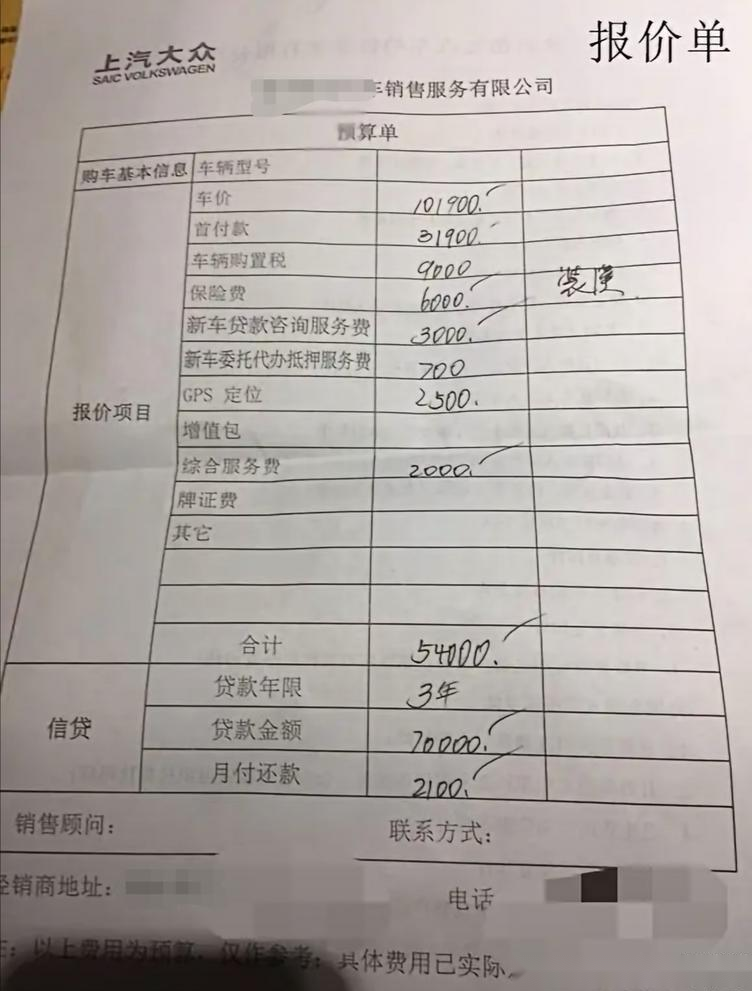 报价单
上汽大众
SAIC VOLKSWAGEN
车销售服务有限公司
预算单
购车基本信息 车辆型号
车价 101900.
首付款 31900.
车辆购置税 9000
保险费 6000. 装潢.
新车贷款咨询服务费 3000.
新车委托代办抵押服务费 700
报价项目 GPS 定位 2500.
增值包
综合服务费 2000.
牌证费
其它
合计 54000.
贷款年限 3年
信贷 贷款金额 70000.
月付还款 2100.
销售顾问: 联系方式:
经销商地址: 电话
注:以上费用为预算,仅作参考;具体费用已实际